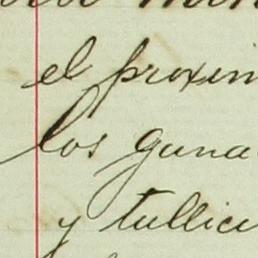 el proxim
los gana
y tullici